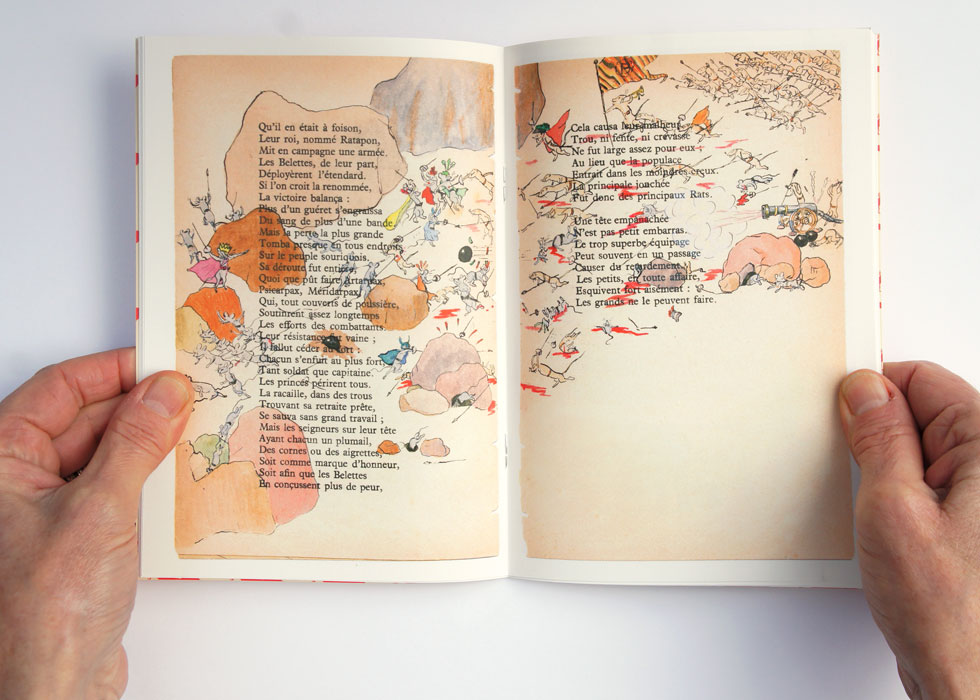 Qu'il en était à foison,
Leur roi, nommé Ratapon,
Mit en campagne une armée.
Les Belettes, de leur part,
Déployèrent l'étendard.
Si l'on croit la renommée,
La victoire balança :
Plus d'un guéret s'engraissa
Du sang de plus d'une bande.
Mais la perte la plus grande
Tomba presque en tous endroits
Sur le peuple souriquois.
Sa déroute fut entière,
Quoi que pût faire Artarpax,
Psicarpax, Méridarpax,
Qui, tout couverts de poussière,
Soutinrent assez longtemps
Les efforts des combattants.
Leur résistance fut vaine ;
Il fallut céder au sort :
Chacun s'enfuit au plus fort
Tant soldat que capitaine.
Les princes périrent tous.
La racaille, dans des trous
Trouvant sa retraite prête,
Se sauva sans grand travail ;
Mais les seigneurs sur leur tête
Ayant chacun un plumail,
Des cornes ou des aigrettes,
Soit comme marque d'honneur,
Soit afin que les Belettes
En conçussent plus de peur,
Cela causa leur malheur.
Trou, ni fente, ni crevasse
Ne fut large assez pour eux ;
Au lieu que la populace
Entrait dans les moindres creux.
La principale jonchée
Fut donc des principaux Rats.
Une tête empanachée
N'est pas petit embarras.
Le trop superbe équipage
Peut souvent en un passage
Causer du retardement.
Les petits, en toute affaire,
Esquivent fort aisément :
Les grands ne le peuvent faire.